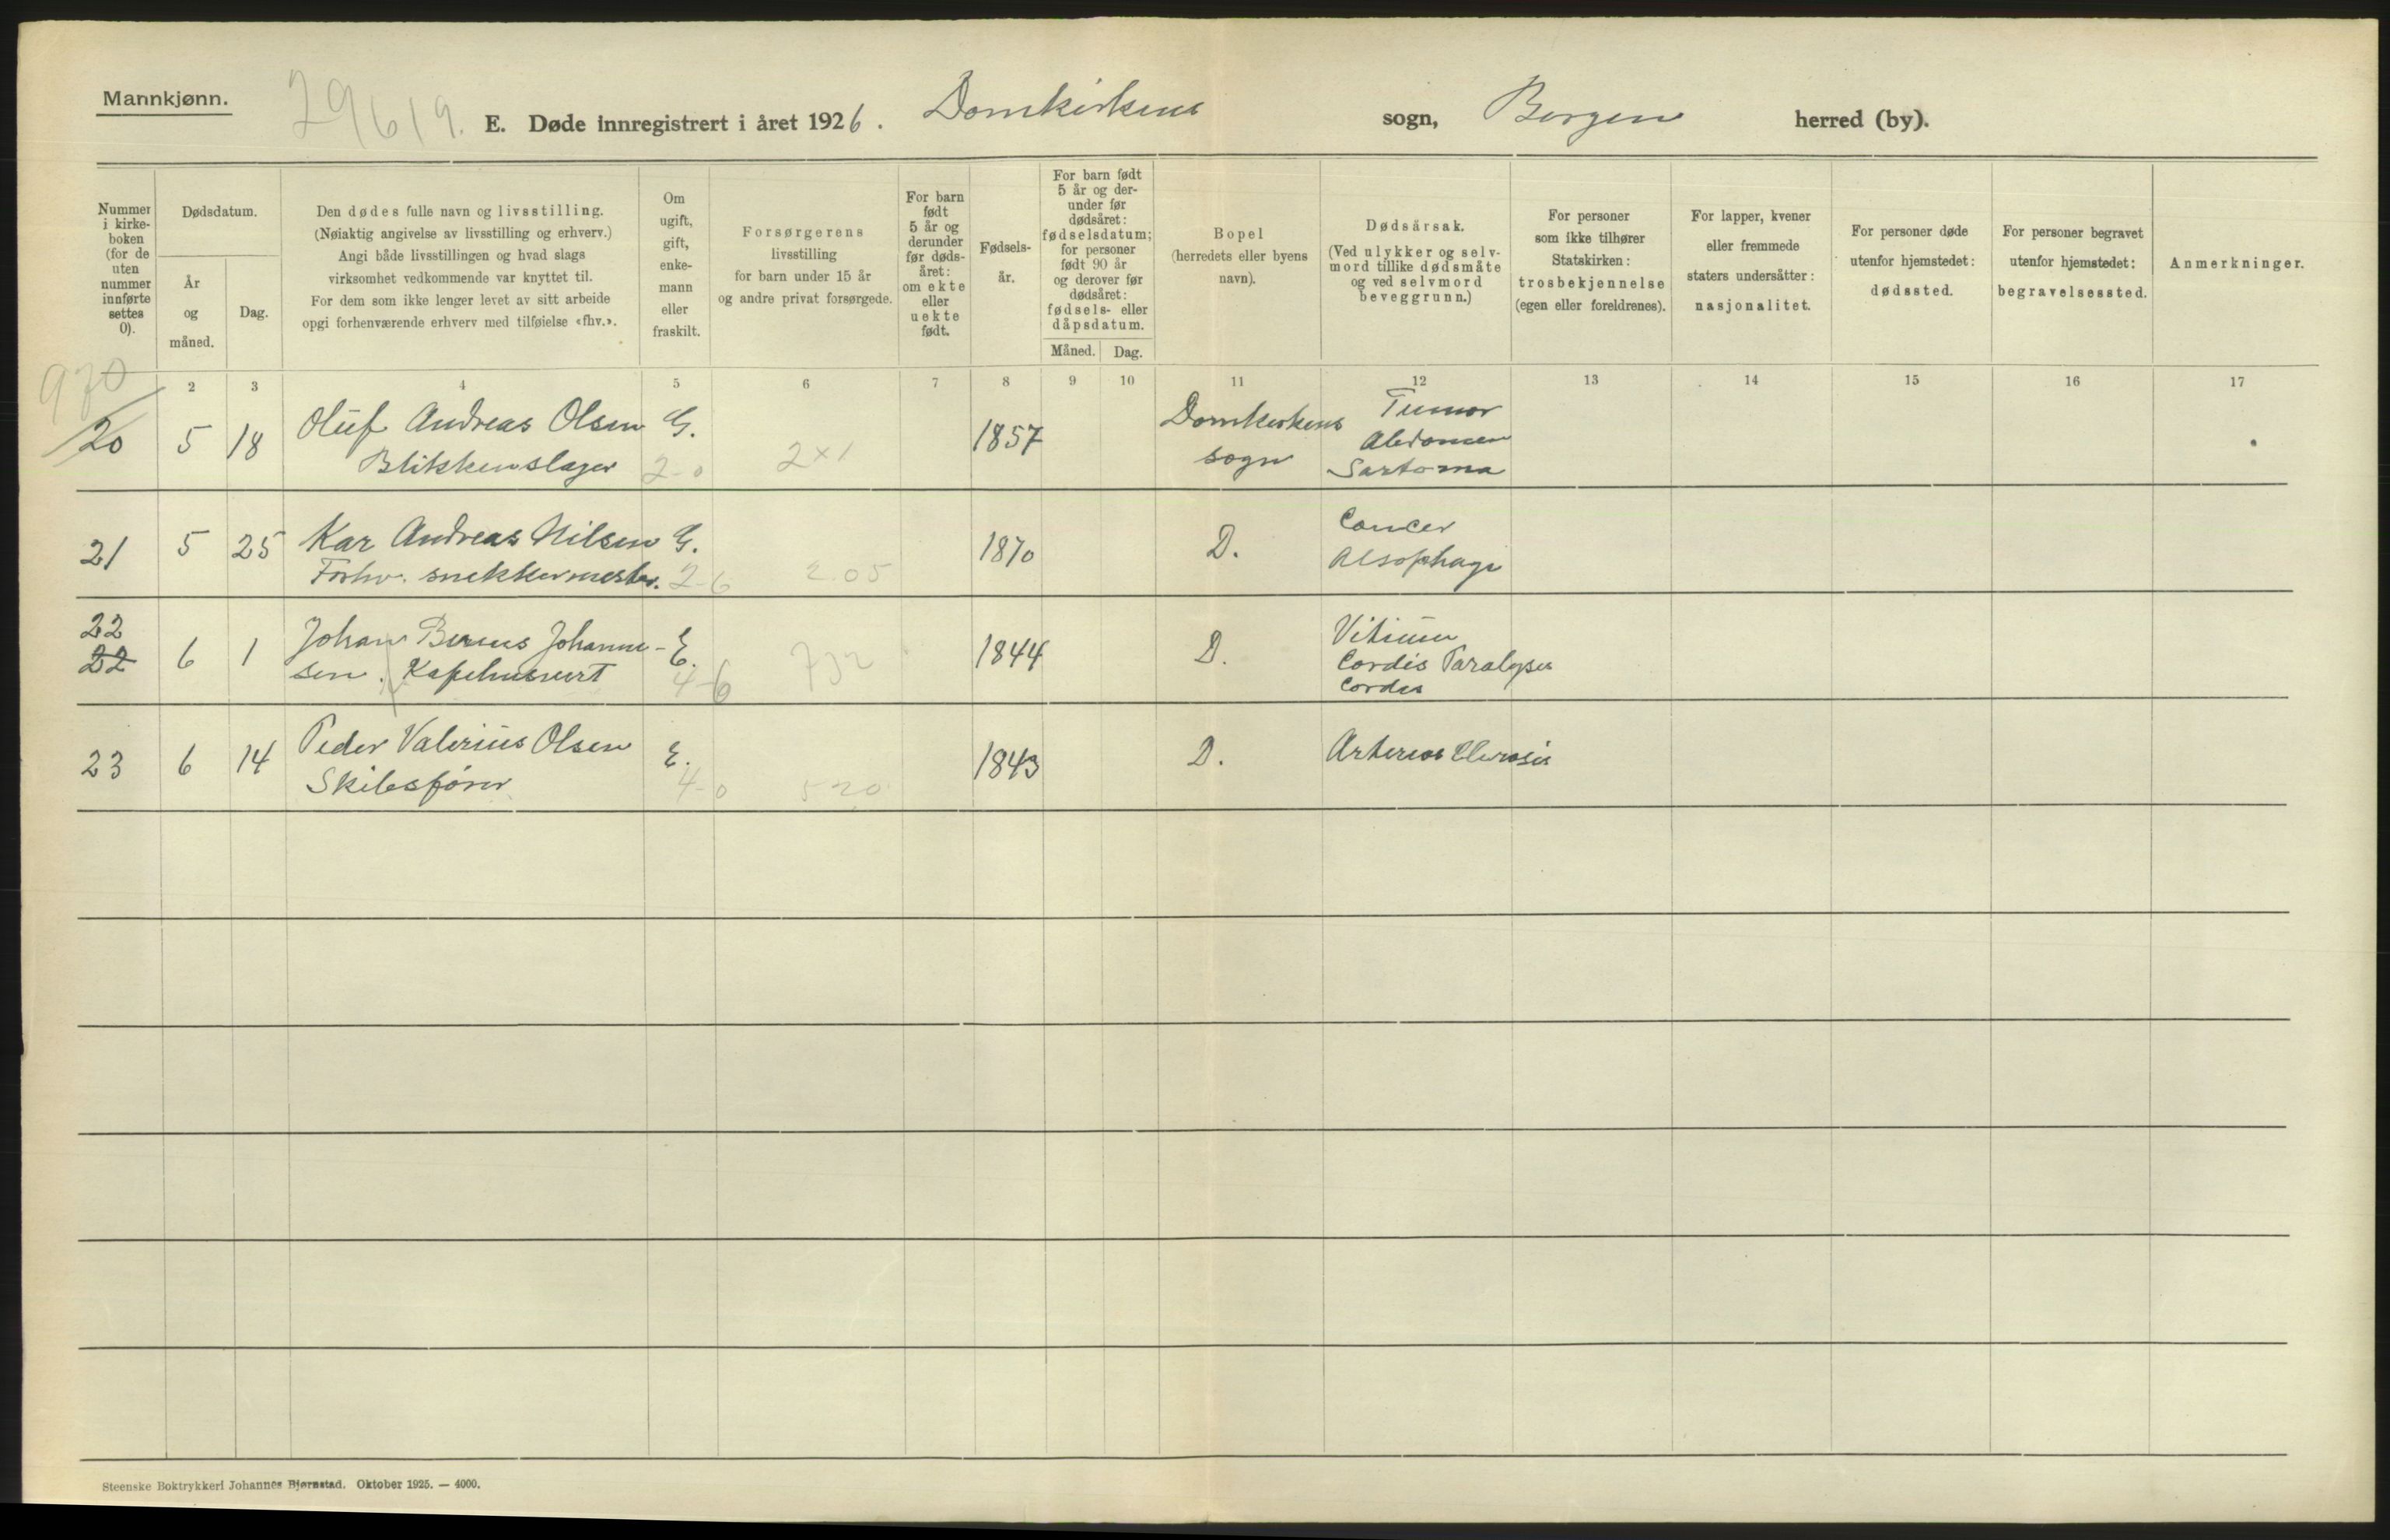 Mannkjønn.
29619.
E. Døde innregistrert i året 1926. Domkirkens sogn, Bergen herred (by).
Nummer i kirke- boken (for de uten nummer innførte settes 0).
Dødsdatum.
År og måned.
Dag.
Den dødes fulle navn og livsstilling.
(Nøiaktig angivelse av livsstilling og erhverv.)
Angi både livsstillingen og hvad slags
virksomhet vedkommende var knyttet til.
For dem som ikke lenger levet av sitt arbeide
opgi forhenværende erhverv med tilføielse «fhv.».
Om
ugift,
gift,
enke-
mann
eller
fraskilt.
Forsørgerens
livsstilling
for barn under 15 år
og andre privat forsørgede.
For barn
født
5 år og
derunder
før døds-
året:
om ekte
eller
uekte
født.
Fødsels-
år.
For barn født
5 år og der-
under før
dødsåret:
fødselsdatum;
for personer
født 90 år
og derover før
dødsåret:
fødsels- eller
dåpsdatum.
Måned. Dag.
Bopel
(herredets eller byens
navn).
Dødsårsak.
(Ved ulykker og selv-
mord tillike dødsmåte
og ved selvmord
beveggrunn.)
For personer
som ikke tilhører
Statskirken:
trosbekjennelse
(egen eller foreldrenes).
For lapper, kvener
eller fremmede
staters undersåtter:
nasjonalitet.
For personer døde
utenfor hjemstedet:
dødssted.
For personer begravet
utenfor hjemstedet:
begravelsessted.
Anmerkninger.
970
2 3 4 5 6 7 8 9 10 11 12 13 14 15 16 17
20 5 18 Oluf Andreas Olsen G. 1857 Domkirkens Tumor
Abdomen
Blikkenslager 2-0 2x1 sogn Sarkoma
21 5 25 Kar Andreas Nilsen G. 1870 D. Cancer
Forhv. snekkermester. 2-6 2.05 Aesophagi
22
22 6 1 Johan Johanne- E. 1844 D. Vitium
sen. 4-6 732 Cordis Paralysis
Cordis
23 6 14 Peder Valerius Olsen E. 1843 D.
Skibsfører 4-0 520
Steenske Boktrykkeri Johannes Bjørnstad. Oktober 1925. — 4000.